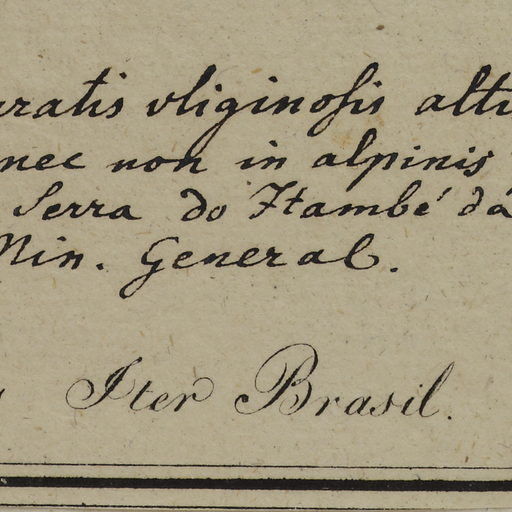 uratis uliginosis alti
nec non in alpinis
Serra do Itambé dá
Min. General.
Iter Brasil.